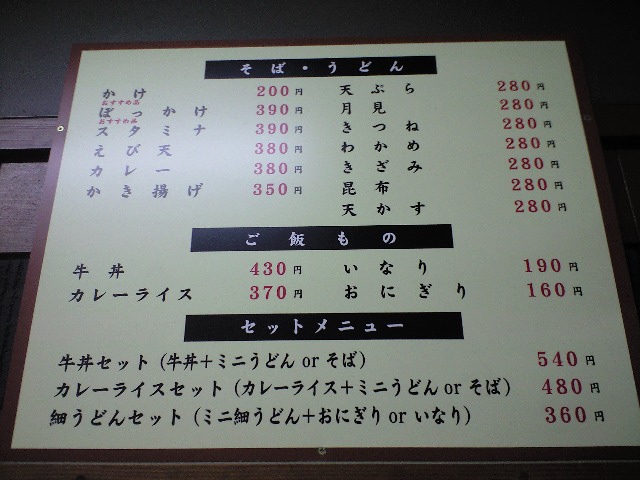 そば・うどん
かけ 200円
おすすめ品
ぼっかけ 390円
おすすめ品
スタミナ 390円
えび天 380円
カレー 380円
かき揚げ 350円
天ぷら 280円
月見 280円
きつね 280円
わかめ 280円
きざみ 280円
昆布 280円
天かす 280円
ご飯もの
牛丼 430円
カレーライス 370円
いなり 190円
おにぎり 160円
セットメニュー
牛丼セット (牛丼+ミニうどん or そば) 540円
カレーライスセット (カレーライス+ミニうどん or そば) 480円
細うどんセット (ミニ細うどん+おにぎり or いなり) 360円